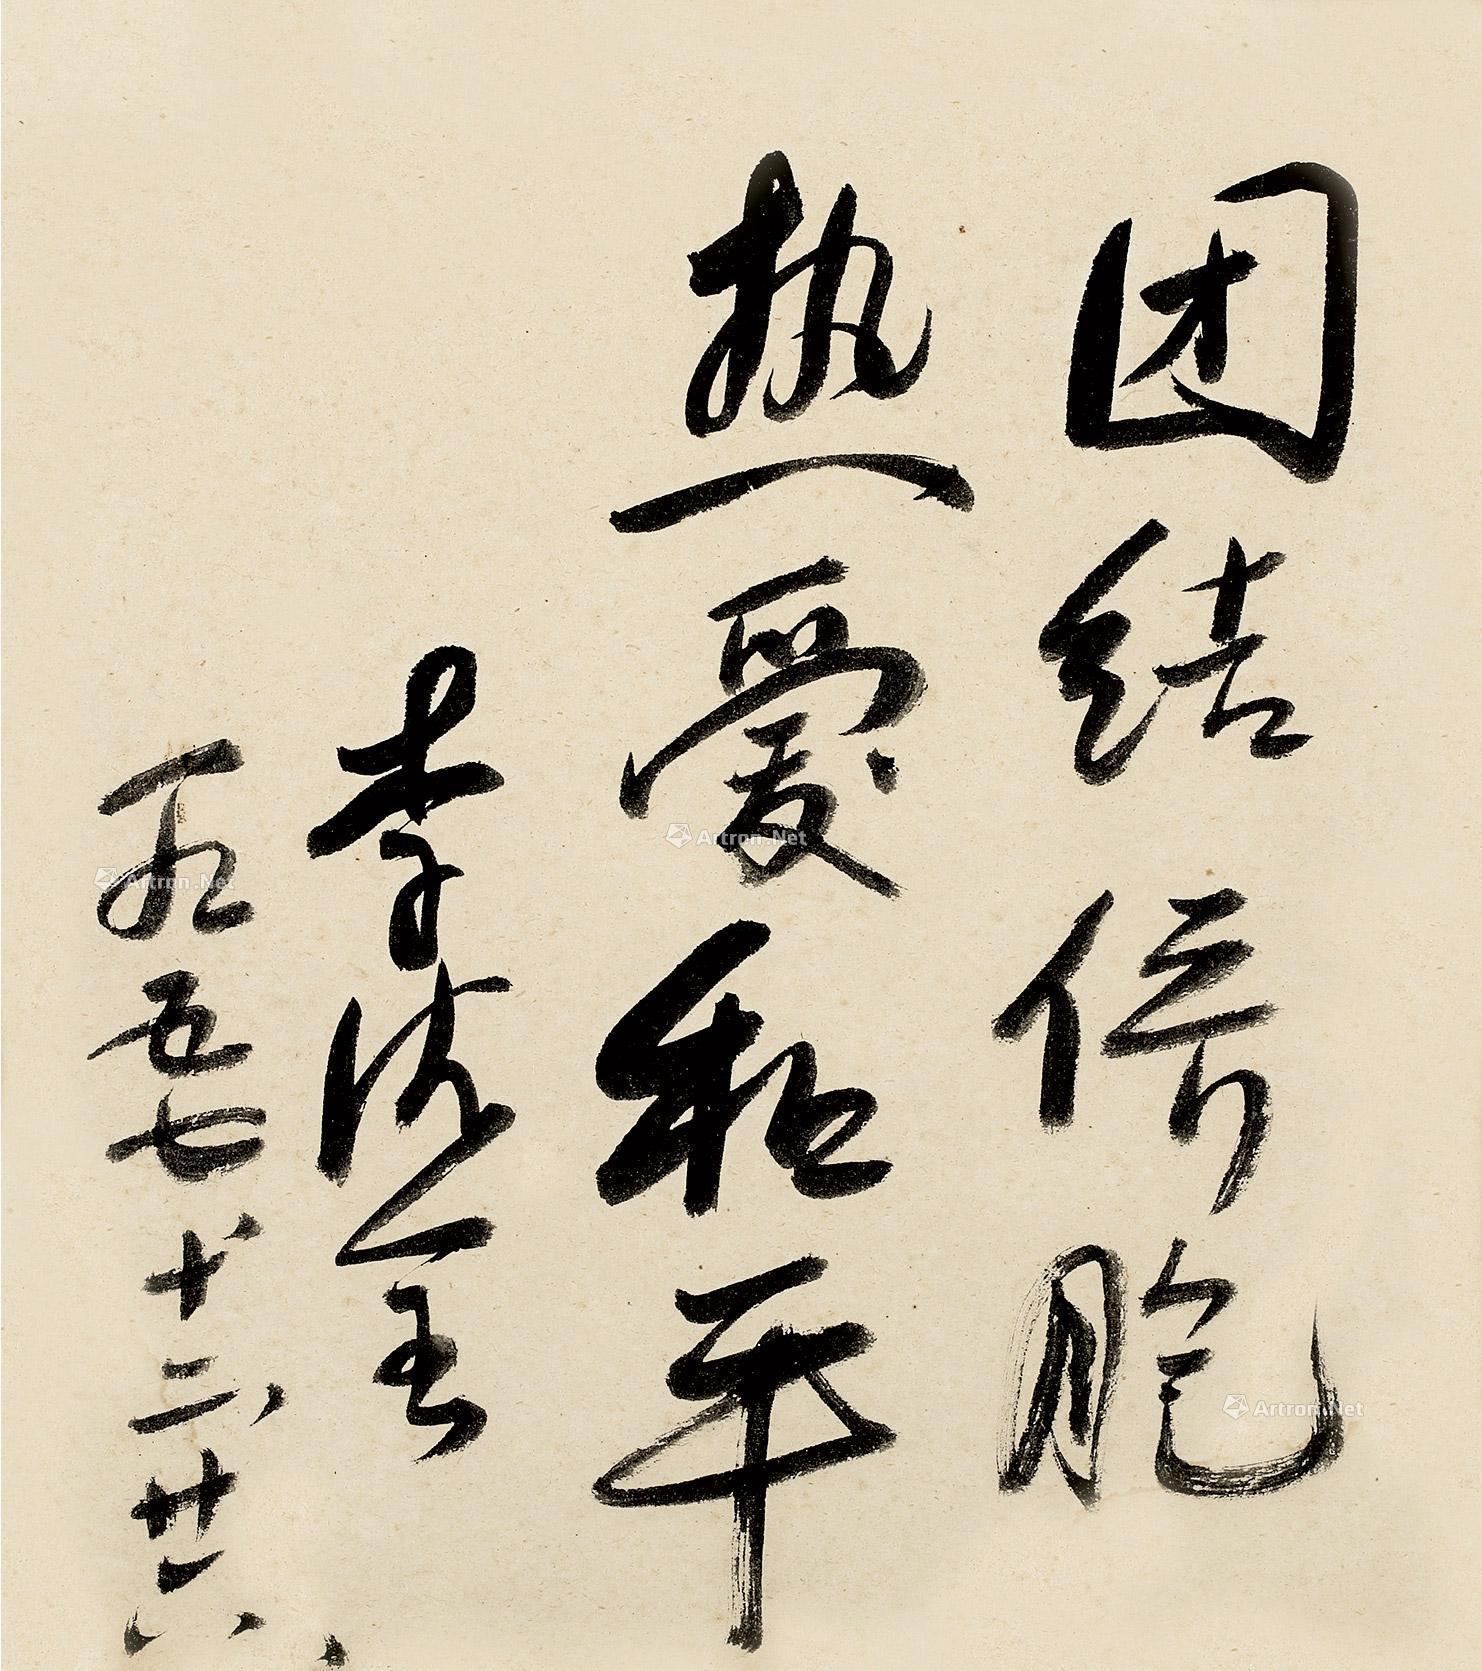 团结侨胞
热爱和平
李德全
一九五七、十二、廿六、
Artron.Net
Artron.Net
Artron.Net